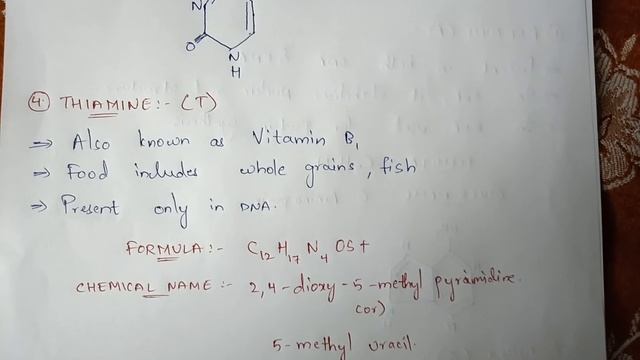 N
O
N
H
4. THIAMINE:- (T)
⇒ Also known as Vitamin B₁
⇒ Food includes whole grains, fish
⇒ Present only in DNA.
FORMULA:- C₁₂ H₁₇ N₄ OS+
CHEMICAL NAME:- 2,4-dioxy-5-methyl pyramidine.
(or)
5-methyl uracil.